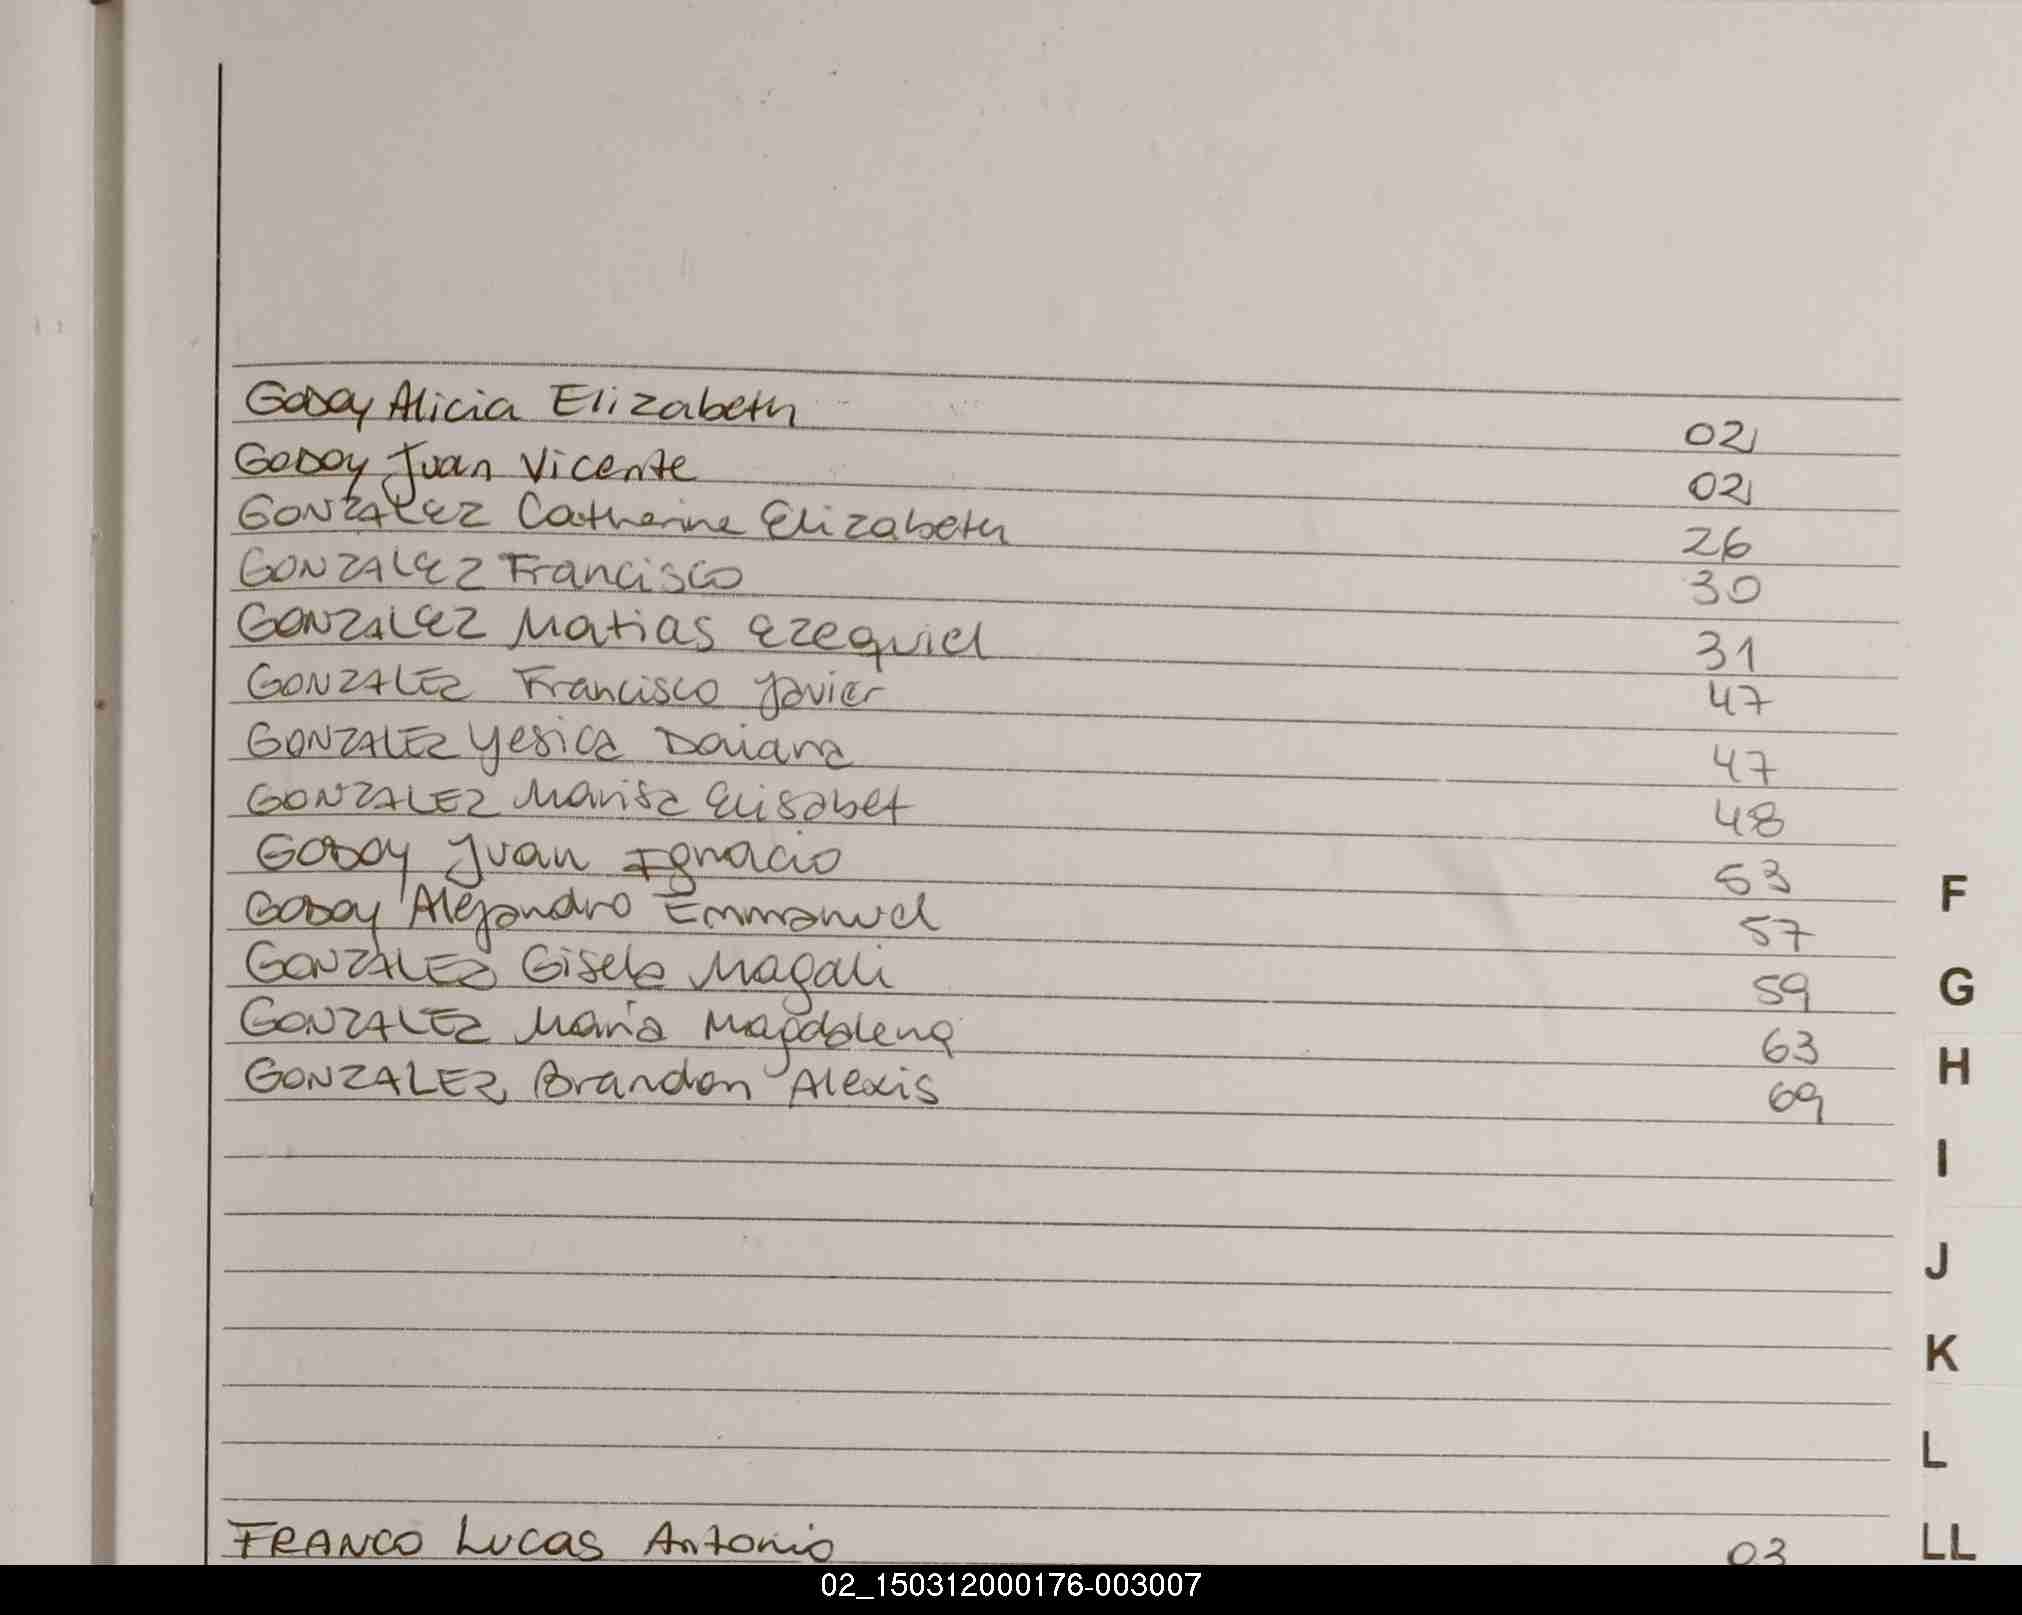 GODOY Alicia Elizabeth 02
GODOY Juan Vicente 02
GONZALEZ Catherine Elizabeth 26
GONZALEZ Francisco 30
GONZALEZ Matias Ezequiel 31
GONZALEZ Francisco Javier 47
GONZALEZ Yesica Daiana 47
GONZALEZ Marisa Elisabet 48
GODOY Juan Ignacio 53
GODOY Alejandro Emmanuel 57
GONZALEZ Gisela Magali 59
GONZALEZ Maria Magdalena 63
GONZALEZ, Brandon Alexis 69
FRANCO Lucas Antonio 03
F
G
H
I
J
K
L
LL
02_150312000176-003007